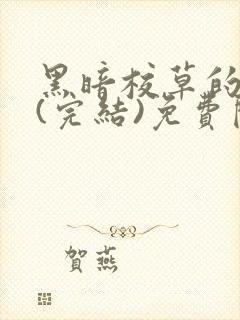 黑暗校草的
(完結)免費
賀燕